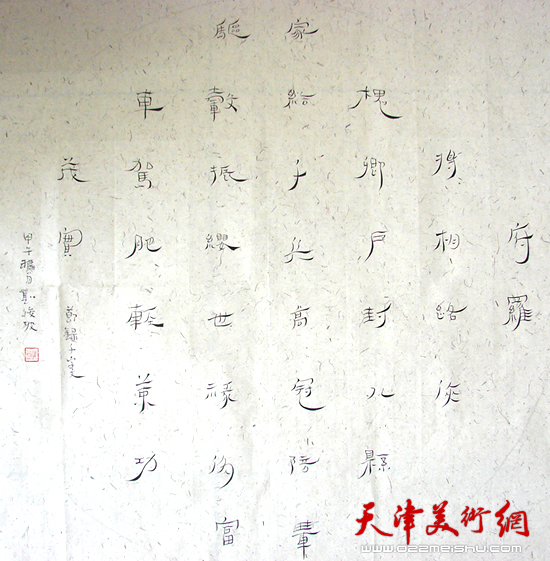 府羅
将相路俠
槐卿戶封八縣
家給千兵高冠陪輦
驅轂振纓世祿侈富
車駕肥輕策功
茂實
甲午
天津美術網
www.022meishu.com